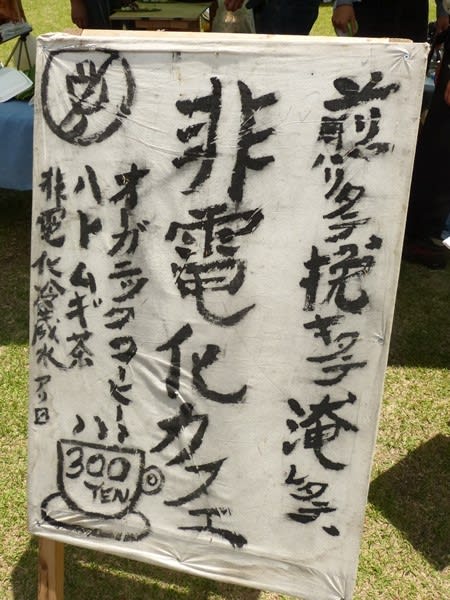 煎リタテ挽キタテ淹レタテ、
非電化カフェ
オーガニックコーヒー
ハトムギ茶
非電化冷蔵水アリ〼
300
TEN